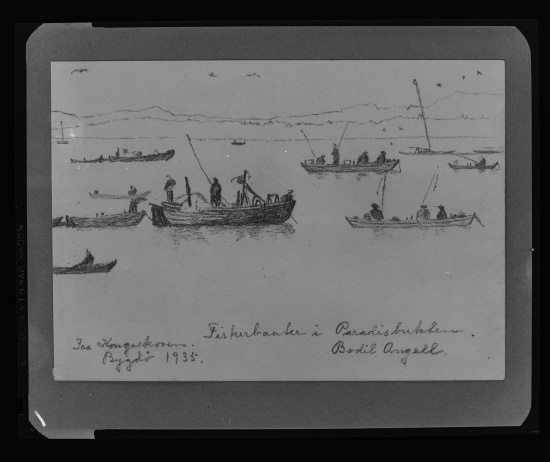 Fiskerbaater i Paradisbukten.
Fra Kongeskoven.
Bygdø 1935.
Bodil Angell.